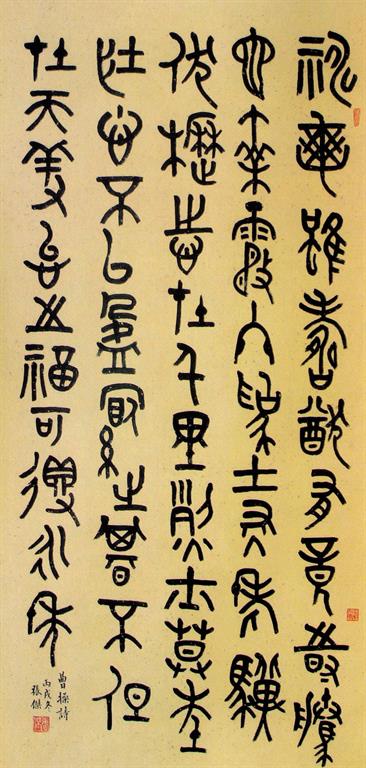 神龜雖壽猶有竟時騰
蛇乘霧終為土灰老驥
伏櫪志在千里烈士暮年
壯心不已盈縮之期不但
在天養怡之福可得永年
曹操詩
丙戌冬
張傑